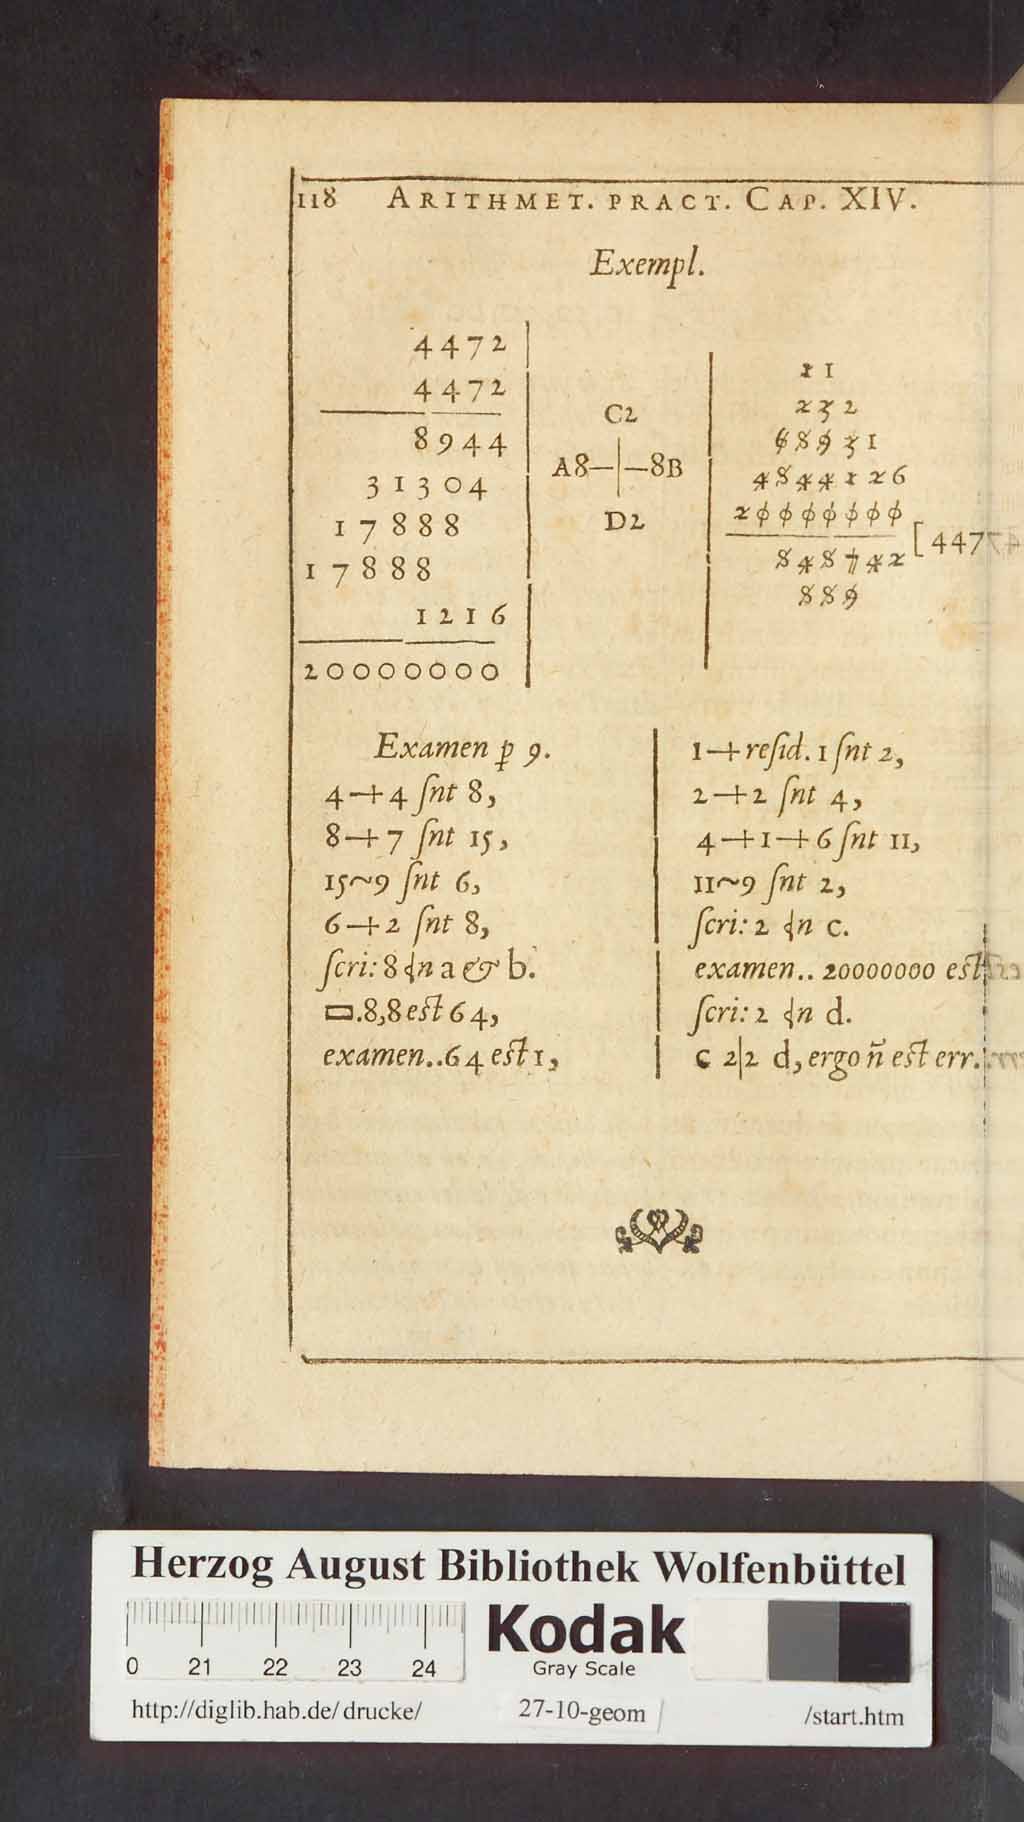 118 ARITHMET. PRACT. CAP. XIV.
Exempl.
4472
4472
8944
31304
17888
17888
1216
20000000
C2
A8—|—8B
D2
21
232
68931
4844126
20000000
[447
848742
889
Examen ꝑ 9.
4+4 ſnt 8,
8+7 ſnt 15,
15~9 ſnt 6,
6+2 ſnt 8,
ſcri: 8 n a & b.
▭.8,8 eſt 64,
examen..64 eſt 1,
1+reſid. 1 ſnt 2,
2+2 ſnt 4,
4+1+6 ſnt 11,
11~9 ſnt 2,
ſcri: 2 n c.
examen.. 20000000 eſt
ſcri: 2 n d.
c 2|2 d, ergo ñ eſt err.
Herzog August Bibliothek Wolfenbüttel
Kodak
Gray Scale
0 21 22 23 24
http://diglib.hab.de/drucke/ 27-10-geom /start.htm